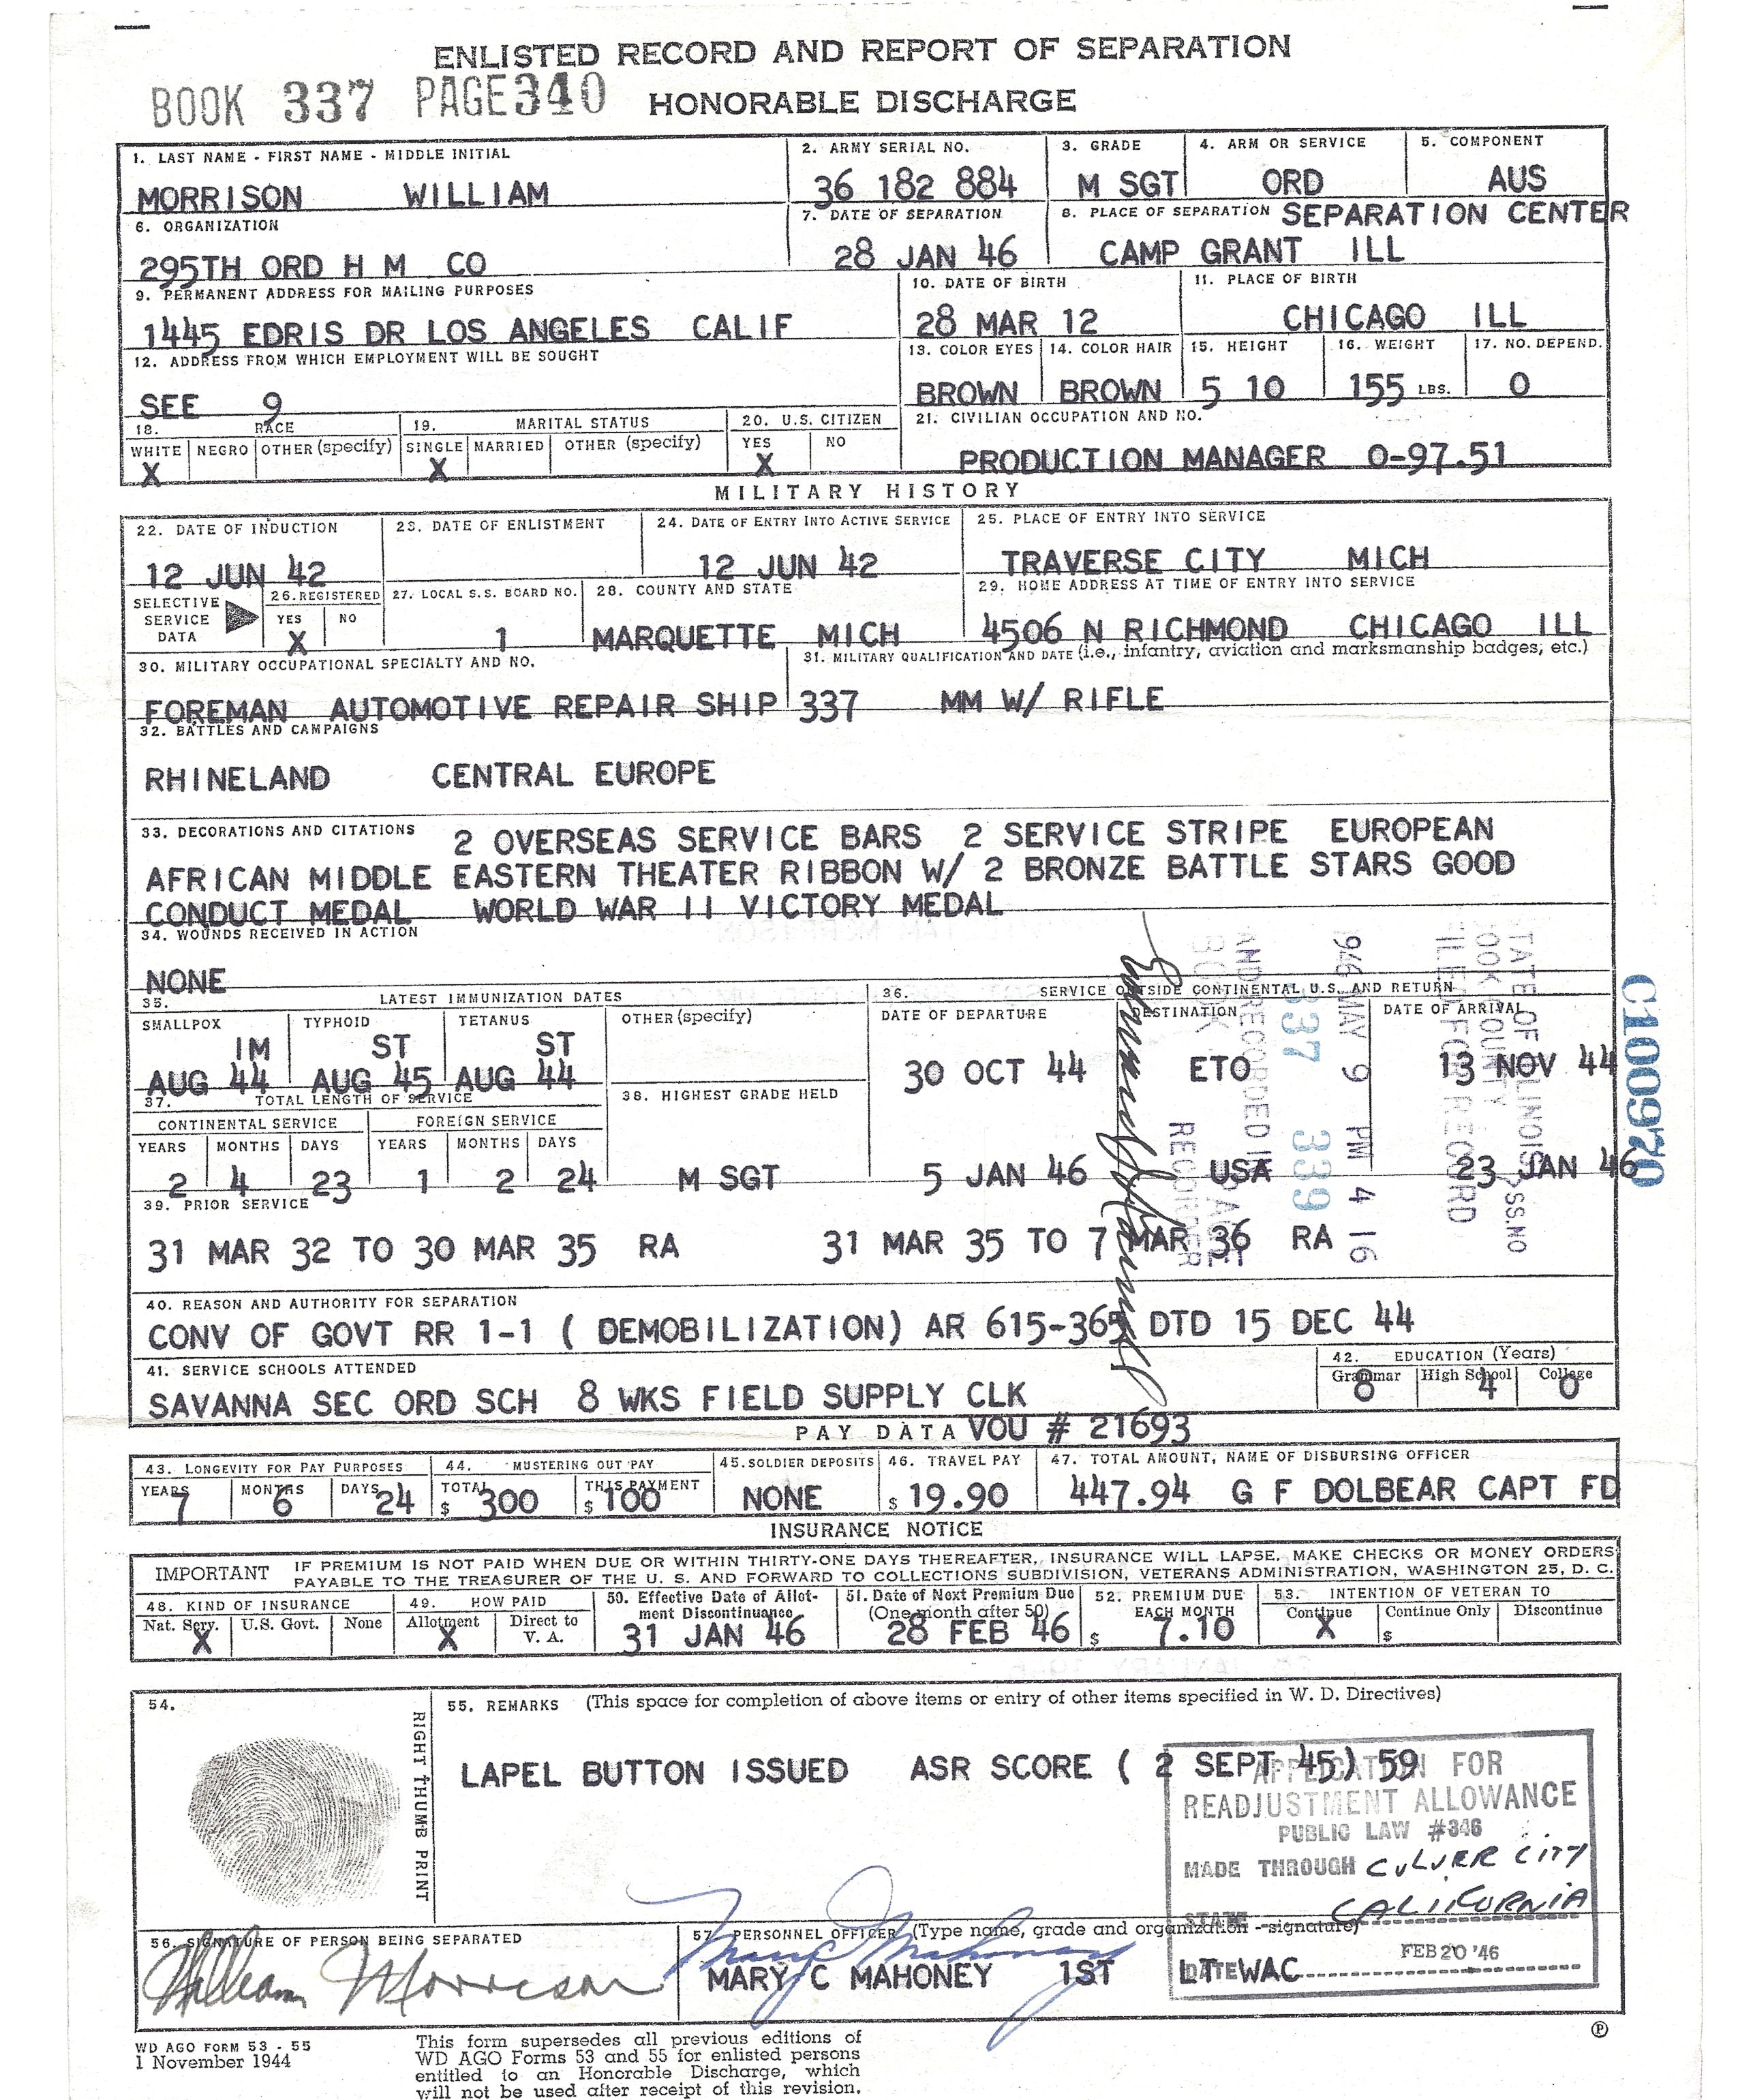 ENLISTED RECORD AND REPORT OF SEPARATION
BOOK 337 PAGE 340 HONORABLE DISCHARGE
1. LAST NAME - FIRST NAME - MIDDLE INITIAL
MORRISON WILLIAM
2. ARMY SERIAL NO.
36 182 884
3. GRADE
M SGT
4. ARM OR SERVICE
ORD
5. COMPONENT
AUS
6. ORGANIZATION
295TH ORD H M CO
7. DATE OF SEPARATION
28 JAN 46
8. PLACE OF SEPARATION SEPARATION CENTER
CAMP GRANT ILL
9. PERMANENT ADDRESS FOR MAILING PURPOSES
1445 EDRIS DR LOS ANGELES CALIF
10. DATE OF BIRTH
28 MAR 12
11. PLACE OF BIRTH
CHICAGO ILL
12. ADDRESS FROM WHICH EMPLOYMENT WILL BE SOUGHT
SEE 9
13. COLOR EYES
BROWN
14. COLOR HAIR
BROWN
15. HEIGHT
5 10
16. WEIGHT
155 LBS.
17. NO. DEPEND.
0
18. RACE
WHITE NEGRO OTHER (specify)
X
19. MARITAL STATUS
SINGLE MARRIED OTHER (specify)
X
20. U.S. CITIZEN
YES NO
X
21. CIVILIAN OCCUPATION AND NO.
PRODUCTION MANAGER 0-97.51
MILITARY HISTORY
22. DATE OF INDUCTION
12 JUN 42
23. DATE OF ENLISTMENT
24. DATE OF ENTRY INTO ACTIVE SERVICE
12 JUN 42
25. PLACE OF ENTRY INTO SERVICE
TRAVERSE CITY MICH
SELECTIVE
SERVICE
DATA
26. REGISTERED
YES NO
X
27. LOCAL S.S. BOARD NO.
1
28. COUNTY AND STATE
MARQUETTE MICH
29. HOME ADDRESS AT TIME OF ENTRY INTO SERVICE
4506 N RICHMOND CHICAGO ILL
30. MILITARY OCCUPATIONAL SPECIALTY AND NO.
FOREMAN AUTOMOTIVE REPAIR SHIP 337
31. MILITARY QUALIFICATION AND DATE (i.e., infantry, aviation and marksmanship badges, etc.)
MM W/ RIFLE
32. BATTLES AND CAMPAIGNS
RHINELAND CENTRAL EUROPE
33. DECORATIONS AND CITATIONS 2 OVERSEAS SERVICE BARS 2 SERVICE STRIPE EUROPEAN
AFRICAN MIDDLE EASTERN THEATER RIBBON W/ 2 BRONZE BATTLE STARS GOOD
CONDUCT MEDAL WORLD WAR II VICTORY MEDAL
34. WOUNDS RECEIVED IN ACTION
NONE
35. LATEST IMMUNIZATION DATES
SMALLPOX TYPHOID TETANUS OTHER (specify)
IM ST ST
AUG 44 AUG 45 AUG 44
36. SERVICE OUTSIDE CONTINENTAL U.S. AND RETURN
DATE OF DEPARTURE DESTINATION DATE OF ARRIVAL
30 OCT 44 ETO 13 NOV 44
5 JAN 46 USA 23 JAN 46
37. TOTAL LENGTH OF SERVICE
CONTINENTAL SERVICE FOREIGN SERVICE
YEARS MONTHS DAYS YEARS MONTHS DAYS
2 4 23 1 2 24
38. HIGHEST GRADE HELD
M SGT
C100970
337 339
MAY 9 PM 4 16
RECORDER
39. PRIOR SERVICE
31 MAR 32 TO 30 MAR 35 RA 31 MAR 35 TO 7 MAR 36 RA
40. REASON AND AUTHORITY FOR SEPARATION
CONV OF GOVT RR 1-1 ( DEMOBILIZATION) AR 615-365 DTD 15 DEC 44
41. SERVICE SCHOOLS ATTENDED
SAVANNA SEC ORD SCH 8 WKS FIELD SUPPLY CLK
42. EDUCATION (Years)
Grammar High School College
8 4 0
PAY DATA VOU # 21693
43. LONGEVITY FOR PAY PURPOSES
YEARS MONTHS DAYS
7 6 24
44. MUSTERING OUT PAY
TOTAL THIS PAYMENT
$ 300 $ 100
45. SOLDIER DEPOSITS
NONE
46. TRAVEL PAY
$ 19.90
47. TOTAL AMOUNT, NAME OF DISBURSING OFFICER
447.94 G F DOLBEAR CAPT FD
INSURANCE NOTICE
IMPORTANT IF PREMIUM IS NOT PAID WHEN DUE OR WITHIN THIRTY-ONE DAYS THEREAFTER, INSURANCE WILL LAPSE. MAKE CHECKS OR MONEY ORDERS
PAYABLE TO THE TREASURER OF THE U. S. AND FORWARD TO COLLECTIONS SUBDIVISION, VETERANS ADMINISTRATION, WASHINGTON 25, D. C.
48. KIND OF INSURANCE
Nat. Serv. U.S. Govt. None
X
49. HOW PAID
Allotment Direct to
V. A.
X
50. Effective Date of Allot-
ment Discontinuance
31 JAN 46
51. Date of Next Premium Due
(One month after 50)
28 FEB 46
52. PREMIUM DUE
EACH MONTH
$ 7.10
53. INTENTION OF VETERAN TO
Continue Continue Only Discontinue
X $
54.
RIGHT THUMB PRINT
55. REMARKS (This space for completion of above items or entry of other items specified in W. D. Directives)
LAPEL BUTTON ISSUED ASR SCORE ( 2 SEPT 45) 59
APPLICATION FOR
READJUSTMENT ALLOWANCE
PUBLIC LAW #346
MADE THROUGH CULVER CITY
STATE CALIFORNIA
DATE FEB 20 '46
56. SIGNATURE OF PERSON BEING SEPARATED
William Morrison
57. PERSONNEL OFFICER (Type name, grade and organization - signature)
Mary C Mahoney
MARY C MAHONEY 1ST LT WAC
WD AGO FORM 53 - 55
1 November 1944
This form supersedes all previous editions of
WD AGO Forms 53 and 55 for enlisted persons
entitled to an Honorable Discharge, which
will not be used after receipt of this revision.